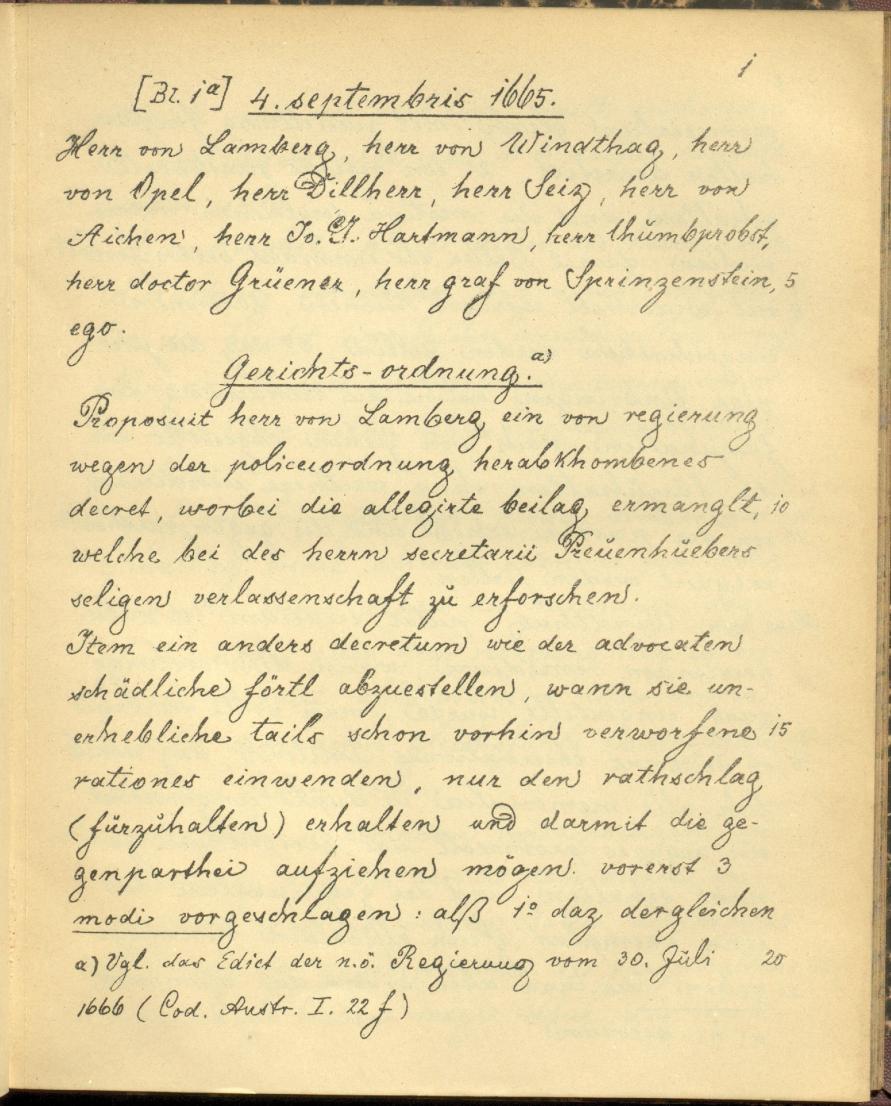 1
[Bl. 1a] 4. septembris 1665.
Herr von Lamberg, herr von Windthag, herr
von Opel, herr Dillherr, herr Seiz, herr von
Aichen, herr Jo. G. Hartmann, herr thŭmbprobst,
herr doctor Grüener, herr graf von Sprinzenstein, 5
ego.
Gerichts-ordnung. a)
Proposuit herr von Lamberg ein von regierung
wegen der policeiordnung herabkhombenes
decret, worbei die allegirte beilag ermanglt, 10
welche bei des herrn secretarii Preŭenhŭebers
seligen verlassenschaft zŭ erforschen.
Item ein anders decretum wie der advocaten
schädliche förtl abzuestellen, wann sie un-
erhebliche tails schon vorhin verworfene 15
rationes einwenden, nur den rathschlag
(fürzŭhalten) erhalten und darmit die ge-
genparthei aufziehen mögen. vorerst 3
modi vorgeschlagen: alß 1º daz dergleichen
a) Vgl. das Edict der n.ö. Regierung vom 30. Jŭli 20
1666 (Cod. Austr. I. 22 f)